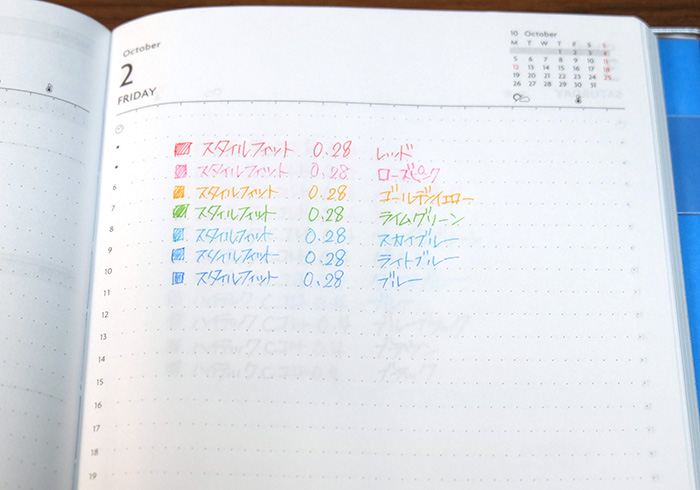 October
2
FRIDAY
10 October
M T W T F S S
1 2 3 4
5 6 7 8 9 10 11
12 13 14 15 16 17 18
19 20 21 22 23 24 25
26 27 28 29 30 31
スタイルフィット 0.28 レッド
スタイルフィット 0.28 ローズピンク
6 スタイルフィット 0.28 ゴールデンイエロー
7 スタイルフィット 0.28 ライムグリーン
8 スタイルフィット 0.28 スカイブルー
9 スタイルフィット 0.28 ライトブルー
10 スタイルフィット 0.28 ブルー
11
12
13
14
15
16
17
18
19